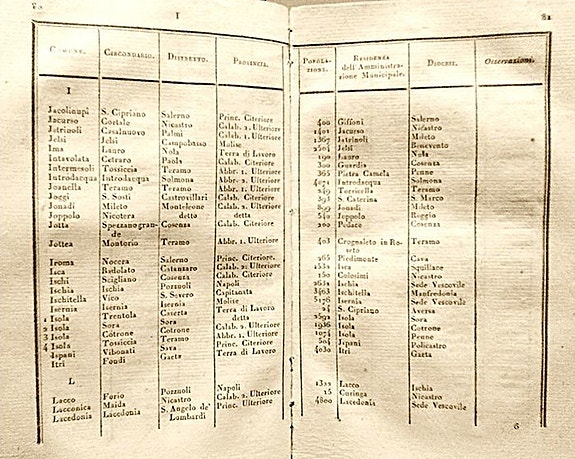 I
COMUNE. CIRCONDARIO. DISTRETTO. PROVINCIA.
I
S. Cipriano Salerno Princ. Citeriore
Jacurso Cortale Nicastro Calab. 2. Ulteriore
Jatrinoli Casalnuovo Palmi Calab. 1. Ulteriore
Jelsi Jelsi Campobasso Molise
Ima Lauro Nola Terra di Lavoro
Intavolata Cetraro Paola Calab. Citeriore
Intermesoli Tossiccia Teramo Abbr. 1. Ulteriore
Introdacqua Introdacqua Solmona Abbr. 2. Ulteriore
Joanella Teramo Teramo Abbr. 1. Ulteriore
Joggi S. Sosti Castrovillari Calab. Citeriore
Jonadi Mileto Monteleone Calab. 2. Ulteriore
Joppolo Nicotera detto detta
Jotta Spezzano gran- Cosenza Calab. Citeriore
de
Jottea Montorio Teramo Abbr. 1. Ulteriore
Iroma Nocera Salerno Princ. Citeriore.
Isca Badolato Catanzaro Calab. 2. Ulteriore
Ischi Scigliano Cosenza Calab. Citeriore
Ischia Ischia Pozzuoli Napoli
Ischitella Vico S. Severo Capitanata
Isernia Isernia Isernia Molise
1 Isola Trentola Caserta Terra di Lavoro
2 Isola Sora Sora detta
3 Isola Cotrone Cotrone Calab. 2. Ulteriore
4 Isola Tossiccia Teramo Abbr. 1. Ulteriore
Jspani Vibonati Sava Princ. Citeriore
Itri Fondi Gaeta Terra di Lavoro
L
Lacco Forio Pozzuoli Napoli
Lacconica Maida Nicastro Calab. 2. Ulteriore
Lacedonia Lacedonia S. Angelo de' Princ. Ulteriore
Lombardi
81
POPOLA- RESIDENZA DIOCESI. Osservazioni.
ZIONE. dell'Amministra-
zione Municipale.
400 Giffoni Salerno
1401 Jacurso Nicastro
1367 Jatrinoli Mileto
2504 Jelsi Benevento
190 Lauro Nola
300 Guardia Cosenza
365 Pietra Camela Penne
4071 Introdacqua Solmona
249 Torricella Teramo
393 S. Caterina S. Marco
899 Jonadi Mileto
540 Jeppolo Reggio
200 Pedace Cosenza
403 Crognaleto in Ro- Teramo
seto
265 Piedimonte Cava
1532 Isca Squillace
150 Colosimi Nicastro
2631 Ischia Sede Vescovile
3463 Ischitella Manfredonia
5176 Isernia Sede Vescovile
24 S. Cipriano Aversa
2592 Isola Sora
1936 Isola Cotrone
1074 Isola Penne
504 Jspani Policastro
4030 Itri Gaeta
1322 Lacco Ischia
15 Curinga Nicastro
4800 Lacedonia Sede Vescovile
6